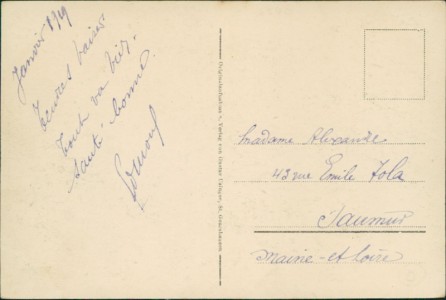 Janvier 1/19
Tendres baisers
Tout va bien.
Santé bonne
Originalaufnahme u. Verlag von
Madame Alexandre
43 rue Emile Zola
Saumur
Maine-et-Loire